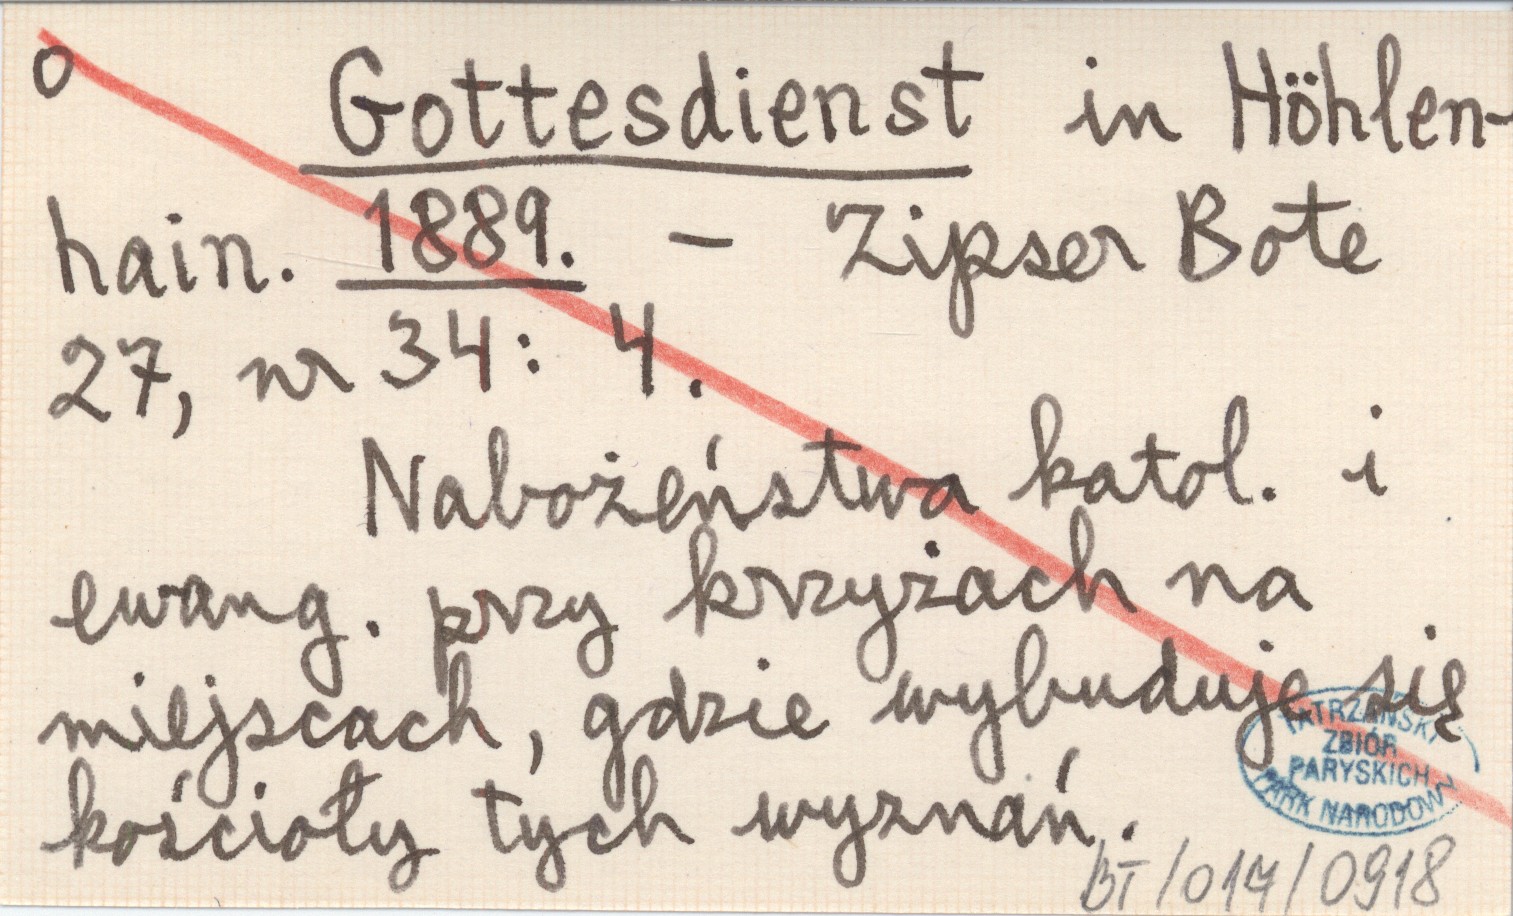 o Gottesdienst in Höhlen-
hain. 1889. — Zipser Bote
27, nr 34: 4.
Nabożeństwa katol. i
ewang. przy krzyżach na
miejscach, gdzie wybuduje się
kościoły tych wyznań.
TATRZAŃSKI
ZBIÓR
PARYSKICH
PARK NARODOWY
BT/017/0918